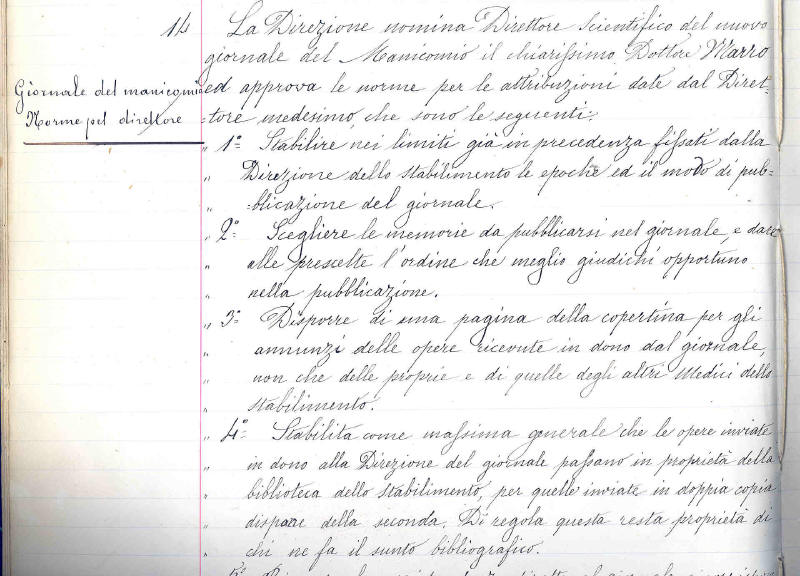 14
Giornale del manicomio
Norme pel direttore
La Direzione nomina Direttore Scientifico del nuovo
giornale del Manicomio il chiarissimo Dottore Marro
ed approva le norme per le attribuzioni date dal Diret=
=tore medesimo, che sono le seguenti:
" 1° Stabilire, nei limiti già in precedenza fissati dalla
" Direzione dello stabilimento le epoche ed il modo di pub=
" =blicazione del giornale.
" 2° Scegliere le memorie da pubblicarsi nel giornale, e dare
" alle prescelte l'ordine che meglio giudichi opportuno
" nella pubblicazione.
" 3° Disporre di una pagina della copertina per gli
" annunzi delle opere ricevute in dono dal giornale,
" non che delle proprie e di quelle degli altri Medici dello
" stabilimento.
" 4° Stabilita come massima generale che le opere inviate
" in dono alla Direzione del giornale passano in proprietà della
" biblioteca dello stabilimento, per quelle inviate in doppia copia
" dispone della seconda. Di regola questa resta proprietà di
" chi ne fa il sunto bibliografico.
" 5°